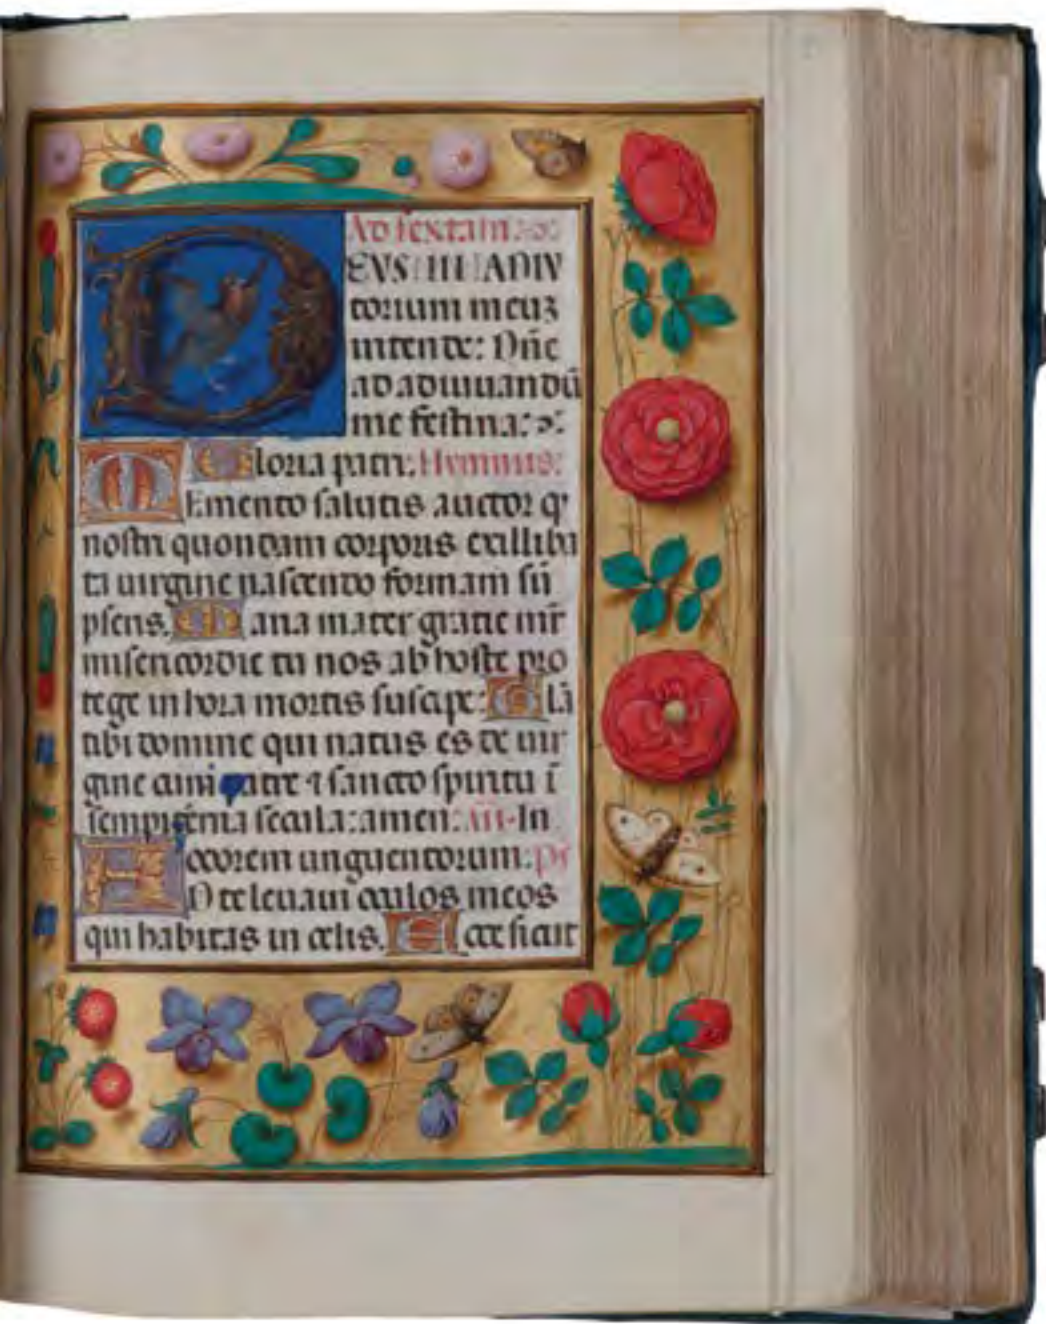 Ad sextam:
EVS IN ADIV
torium meuz
intende: Dñe
ad adiuuandū
me festina:
Gloria patri: Hymnus:
Memento salutis auctor qͥ
nostri quondam corporis ex illiba
ta uirgine nascendo formam sū
pseris. Maria mater gratie mr̄
misericordie tu nos ab hoste pro
tege in hora mortis suscipe: Glā
tibi domine qui natus es de uir
gine cum patre ⁊ sancto spiritu ī
sempiterna secula: amen: An̄. In
odorem unguentorum: ps
AD te leuaui oculos meos
qui habitas in celis. Ecce sicut